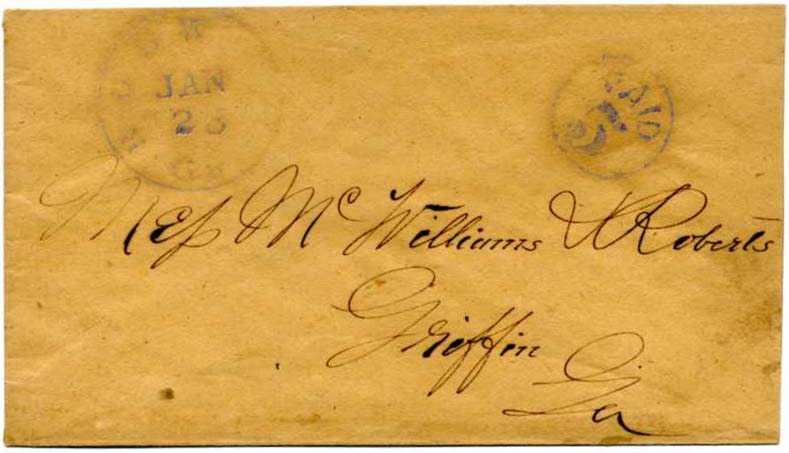 JAN
PAID
5
Meſs Mc Williams & Roberts
Griffin
Ga